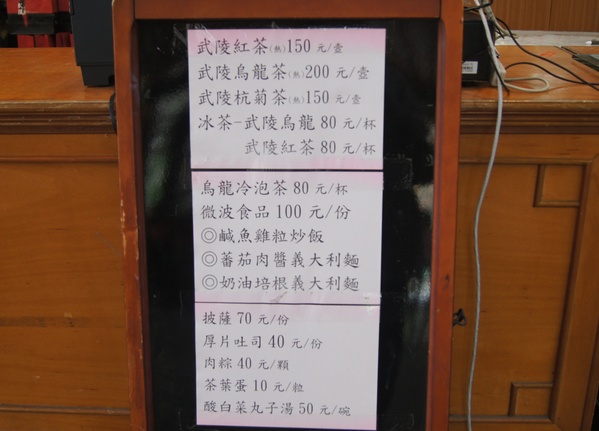 武陵紅茶(熱)150元/壺
武陵烏龍茶(熱)200元/壺
武陵杭菊茶(熱)150元/壺
冰茶-武陵烏龍80元/杯
武陵紅茶80元/杯
烏龍冷泡茶80元/杯
微波食品100元/份
◎鹹魚雞粒炒飯
◎蕃茄肉醬義大利麵
◎奶油培根義大利麵
披薩70元/份
厚片吐司40元/份
肉粽40元/顆
茶葉蛋10元/粒
酸白菜丸子湯50元/碗